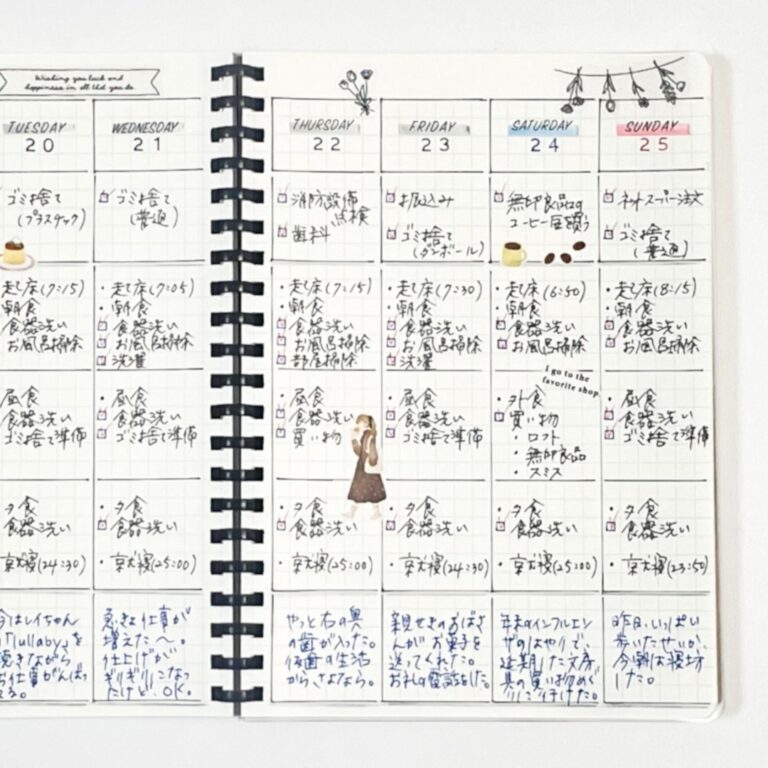 Wishing you luck and
happiness in all that you do.
TUESDAY
20
ゴミ捨て
(プラスチック)
起床(7:15)
朝食
食器洗い
お風呂掃除
昼食
食器洗い
ゴミ捨て準備
夕食
食器洗い
就寝(24:30)
今はレイちゃん
「lullaby」を
聴きながら
お仕事がんばっ
てる。
WEDNESDAY
21
ゴミ捨て
(普通)
・起床(7:05)
・朝食
食器洗い
お風呂掃除
洗濯
・昼食
食器洗い
ゴミ捨て準備
・夕食
食器洗い
・就寝(25:00)
急きょ仕事が
増えた〜。
仕上げが
ギリギリになっ
たけど、OK。
THURSDAY
22
消防設備
点検
歯科
・起床(7:15)
・朝食
食器洗い
お風呂掃除
部屋掃除
・昼食
食器洗い
買い物
・夕食
食器洗い
・就寝(25:00)
やっと右の奥
の歯が入った。
仮歯の生活
から、さよなら。
FRIDAY
23
お振込み
ゴミ捨て
(ダンボール)
・起床(7:30)
・朝食
食器洗い
お風呂掃除
洗濯
・昼食
食器洗い
ゴミ捨て準備
・夕食
食器洗い
・就寝(24:30)
親せきのおばさ
んがお菓子を
送ってくれた。
お礼の電話をした。
SATURDAY
24
無印良品で
コーヒー豆買う
・起床(6:50)
・朝食
食器洗い
お風呂掃除
I go to the
favorite shop.
・外食
買い物
・ロフト
・無印良品
・スミス
・夕食
食器洗い
・就寝(25:00)
年末のインフルエン
ザのはやりで、
延期した文房
具の買い物めぐ
りに行けた。
SUNDAY
25
ネットスーパー注文
ゴミ捨て
(普通)
・起床(8:15)
・朝食
食器洗い
お風呂掃除
・昼食
食器洗い
ゴミ捨て準備
・夕食
食器洗い
・就寝(23:50)
昨日、いっぱい
歩いたせいか、
今朝は寝坊
した。